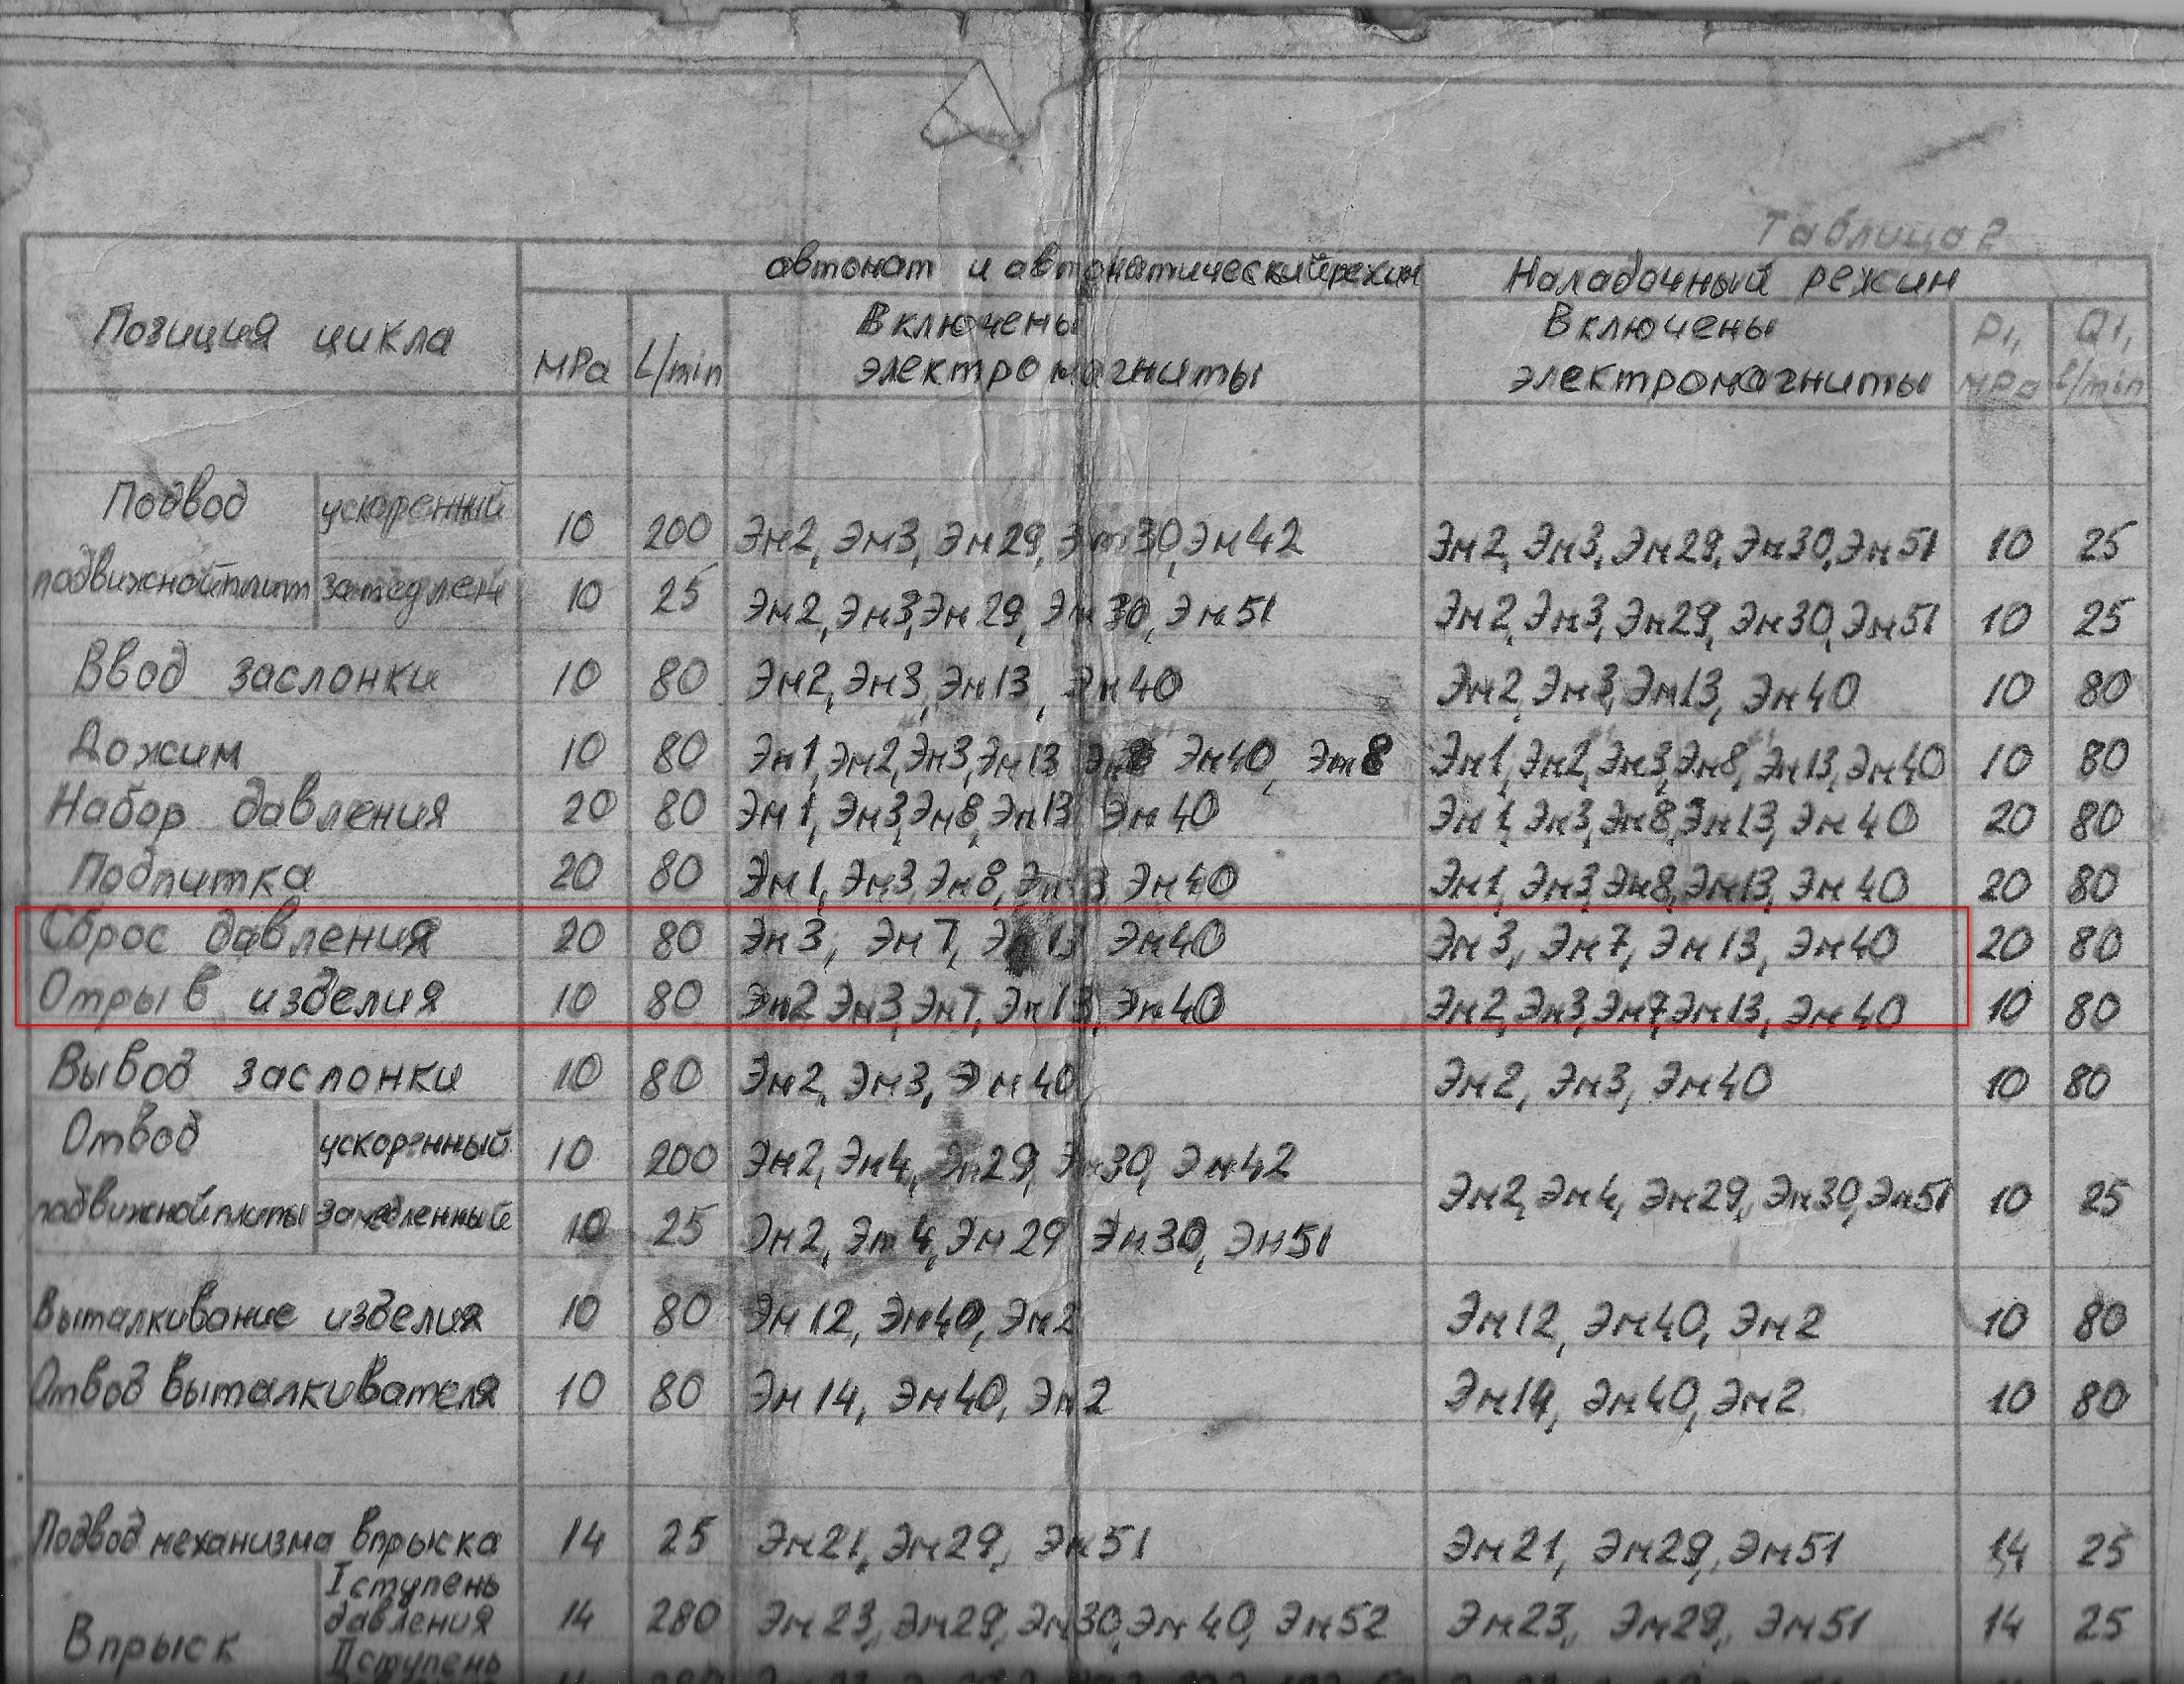 Таблица 2
автомат и автоматический режим Наладочный режим
Позиция цикла MPa L/min Включены электромагниты Включены электромагниты P1, MPa Q1, l/min
Подвод ускоренный 10 200 Эм2, Эм3, Эм29, Эм30, Эм42 Эм2, Эм3, Эм29, Эм30, Эм51 10 25
подвижной плит замедлен 10 25 Эм2, Эм3, Эм29, Эм30, Эм51 Эм2, Эм3, Эм29, Эм30, Эм51 10 25
Ввод заслонки 10 80 Эм2, Эм3, Эм13, Эм40 Эм2, Эм3, Эм13, Эм40 10 80
Дожим 10 80 Эм1, Эм2, Эм3, Эм13 Эм40, Эм8 Эм1, Эм2, Эм3, Эм8, Эм13, Эм40 10 80
Набор давления 20 80 Эм1, Эм3, Эм8, Эм13 Эм40 Эм1, Эм3, Эм8, Эм13, Эм40 20 80
Подпитка 20 80 Эм1, Эм3, Эм8, Эм13 Эм40 Эм1, Эм3, Эм8, Эм13, Эм40 20 80
Сброс давления 20 80 Эм3, Эм7, Эм13 Эм40 Эм3, Эм7, Эм13, Эм40 20 80
Отрыв изделия 10 80 Эм2 Эм3, Эм7, Эм13, Эм40 Эм2, Эм3, Эм7, Эм13, Эм40 10 80
Вывод заслонки 10 80 Эм2, Эм3, Эм40 Эм2, Эм3, Эм40 10 80
Отвод ускоренный 10 200 Эм2, Эм4, Эм29, Эм30, Эм42
подвижной плиты замедленный 10 25 Эм2, Эм4, Эм29 Эм30, Эм51 Эм2, Эм4, Эм29, Эм30, Эм51 10 25
Выталкивание изделия 10 80 Эм12, Эм40, Эм2 Эм12, Эм40, Эм2 10 80
Отвод выталкивателя 10 80 Эм14, Эм40, Эм2 Эм14, Эм40, Эм2 10 80
Подвод механизма впрыска 14 25 Эм21, Эм29, Эм51 Эм21, Эм29, Эм51 14 25
Впрыск I ступень давления 14 280 Эм23, Эм29, Эм30, Эм40, Эм52 Эм23, Эм29, Эм51 14 25
II ступень